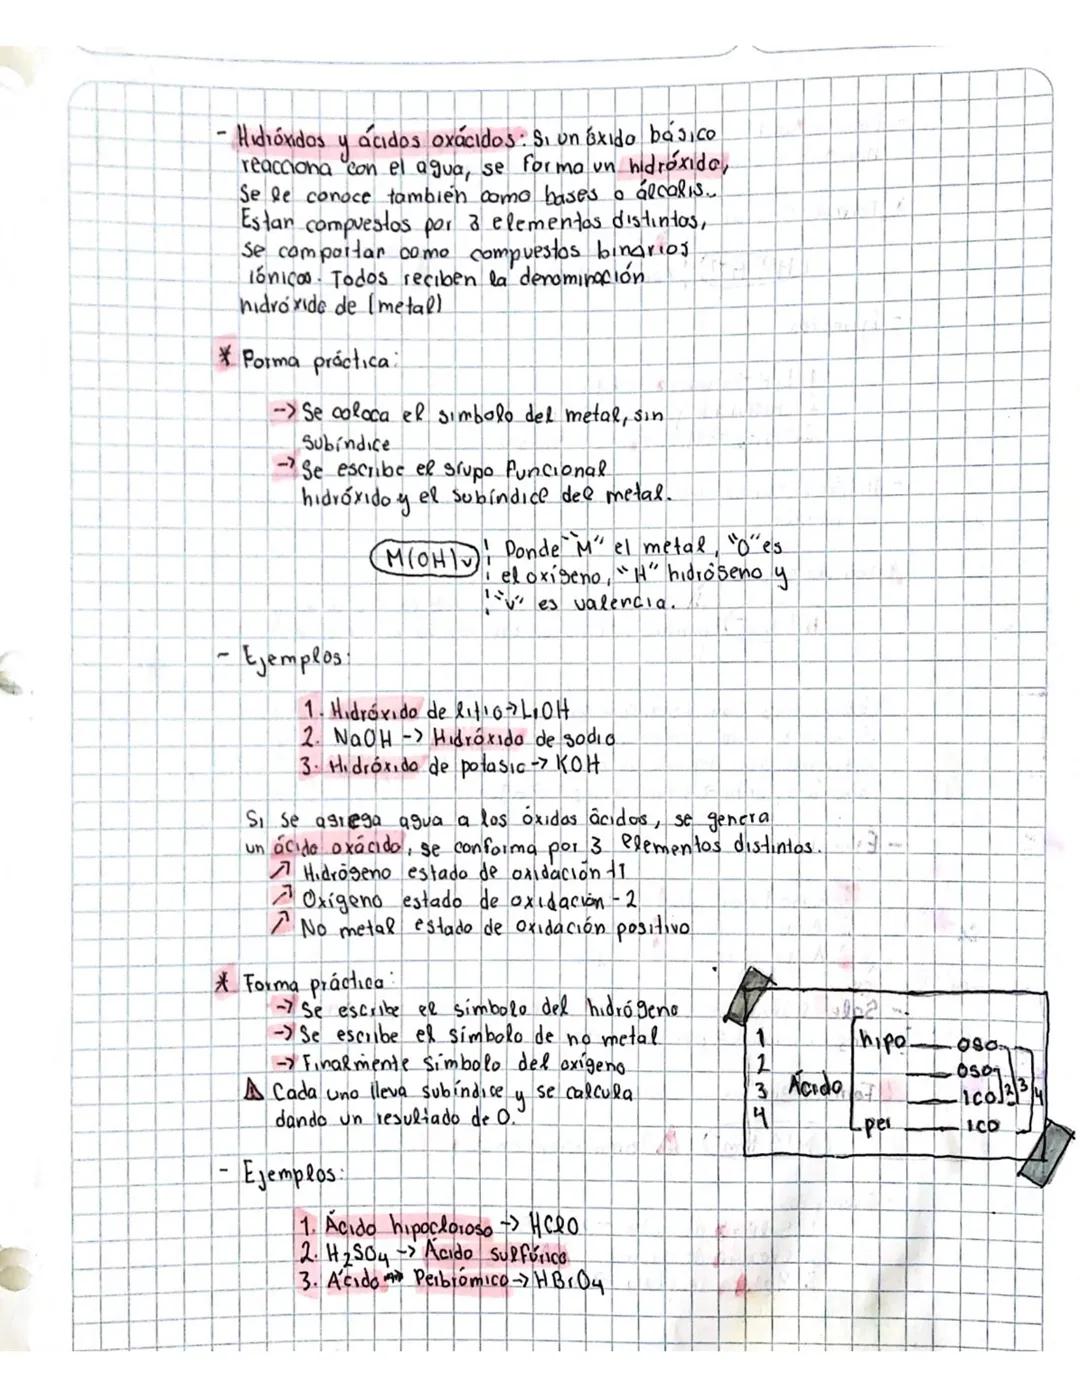 - Hidróxidos y ácidos oxácidos: Si un óxido básico
reacciona con el agua, se forma un hidróxido,
Se le conoce también como bases o álcalis.
Estan compuestos por 3 elementos distintos,
se comportan como compuestos binarios
iónicos. Todos reciben la denominación
hidróxido de (metal)
* Forma práctica:
-> Se coloca el símbolo del metal, sin
subíndice
-> Se escribe el grupo funcional
hidróxido y el subíndice del metal.
M(OH)v
Donde "M" el metal, "O" es
el oxígeno, "H" hidrógeno y
"v" es valencia.
- Ejemplos:
1. Hidróxido de litio -> LiOH
2. NaOH -> Hidróxido de sodio
3. Hidróxido de potasio -> KOH
Si se agrega agua a los óxidos ácidos, se genera
un ácido oxácido, se conforma por 3 elementos distintos.
↗ Hidrógeno estado de oxidación +1
↗ Oxígeno estado de oxidación -2
↗ No metal estado de oxidación positivo
* Forma práctica:
-> Se escribe el símbolo del hidrógeno
-> Se escribe el símbolo de no metal
-> Finalmente símbolo del oxígeno
⚠ Cada uno lleva subíndice y se calcula
dando un resultado de 0.
1 hipo — oso
2 — oso
3 Ácido — ico 2 3 4
4 per — ico
- Ejemplos:
1. Ácido hipocloroso -> HClO
2. H₂SO₄ -> Ácido sulfúrico
3. Ácido Perbrómico -> HBrO₄